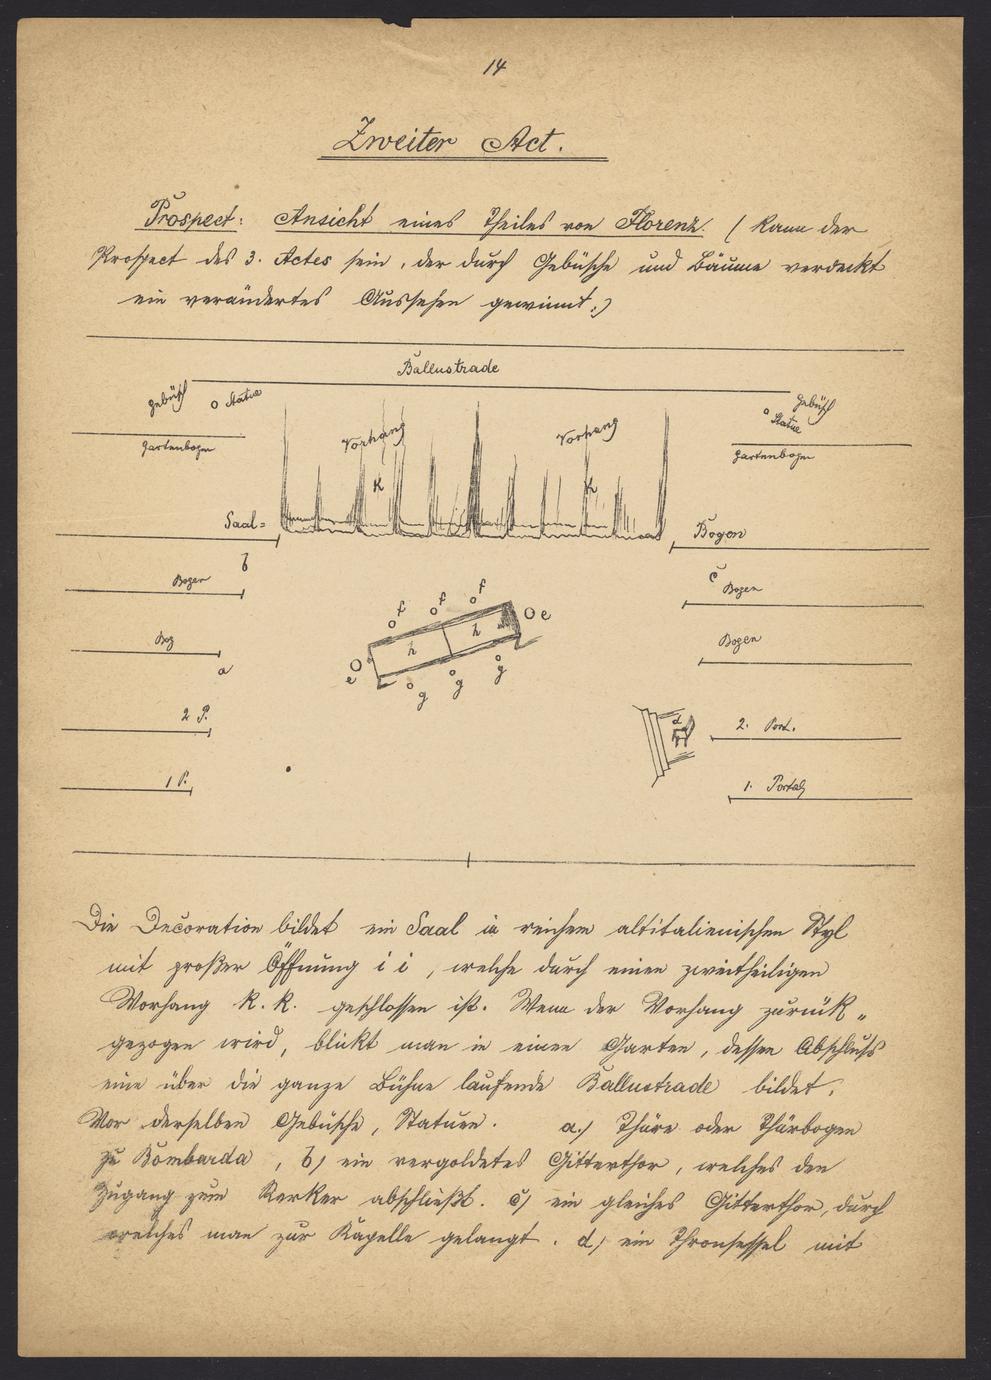 14
Zweiter Act.
Prospect: Ansicht eines Theiles von Florenz. (Kann der
Prospect des 3. Actes sein, der durch Gebüsche und Bäume verdeckt
ein verändertes Aussehen gewinnt.)
Ballustrade
Gebüsch o Statue
Gebüsch
o Statue
Vorhang Vorhang
Gartenbogen
Gartenbogen
K K
Saal= Bogen
b
Bogen
c Bogen
f f f
h h
e e
g g g
Bog
a
Bogen
2 P.
d
2. Port.
1 P.
1. Portal
Die Decoration bildet ein Saal in reichem altitalienischen Styl
mit großer Öffnung i i, welche durch einen zweitheiligen
Vorhang K. K. geschlossen ist. Wenn der Vorhang zurück„
gezogen wird, blickt man in einen Garten, dessen Abschluss
eine über die ganze Bühne laufende Ballustrade bildet.
Vor derselben Gebüsche, Statuen. a.) Thüre oder Thürbogen
zu Bombarda, b) ein vergoldetes Gitterthor, welches den
Zugang zum Kerker abschließt. c) ein gleiches Gitterthor, durch
welches man zur Kapelle gelangt. d) ein Thronsessel mit